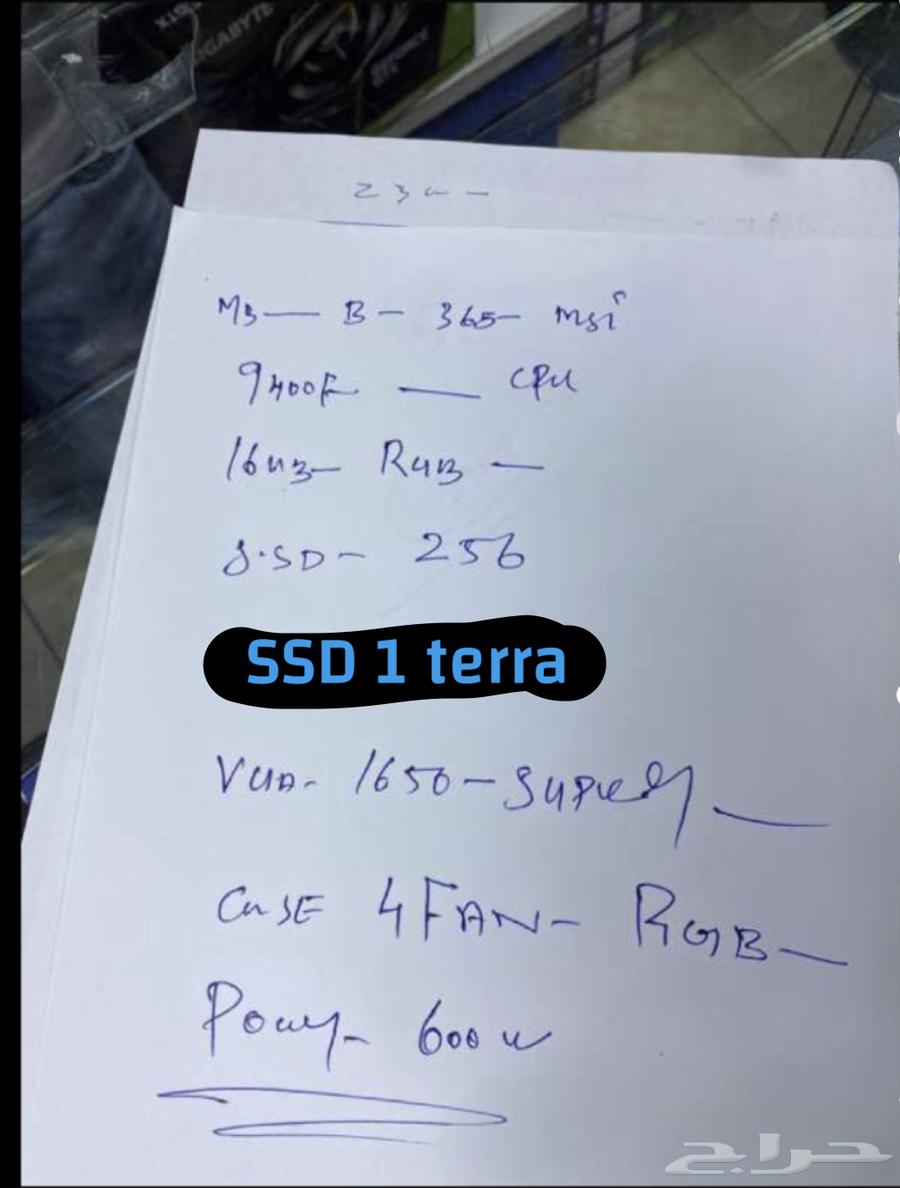 GIGABYTE
M3 — B - 365 - msi
9400F — CPU
16GB - RGB —
S.SD - 256
SSD 1 terra
VGA - 1650 - super —
CASE 4 FAN - RGB —
Power - 600 w
حراج